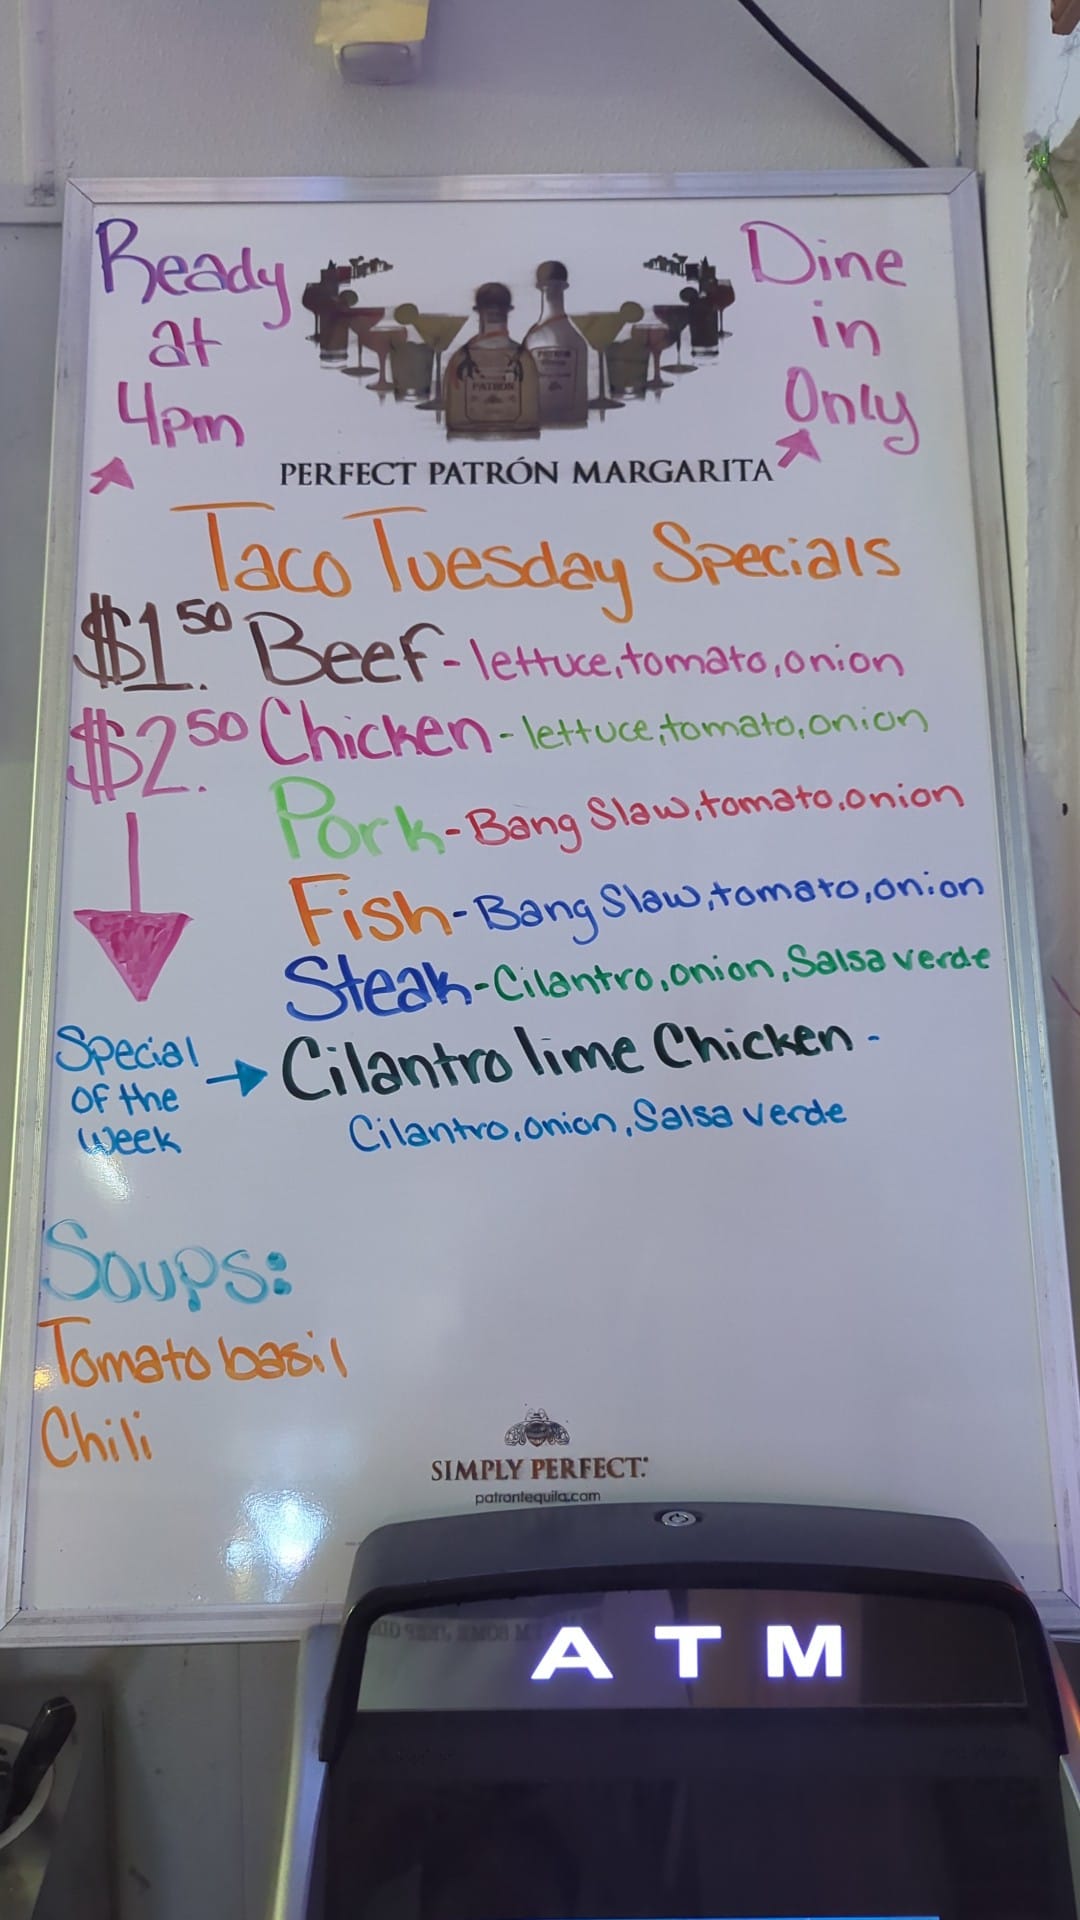 Ready
at
4pm
Dine
in
Only
PATRÓN
PERFECT PATRÓN MARGARITA
Taco Tuesday Specials
$1.50 Beef - lettuce, tomato, onion
$2.50 Chicken - lettuce, tomato, onion
Pork - Bang Slaw, tomato, onion
Fish - Bang Slaw, tomato, onion
Steak - Cilantro, onion, Salsa verde
Special
of the
Week
Cilantro lime Chicken -
Cilantro, onion, Salsa verde
Soups:
Tomato basil
Chili
SIMPLY PERFECT.
patrontequila.com
ATM